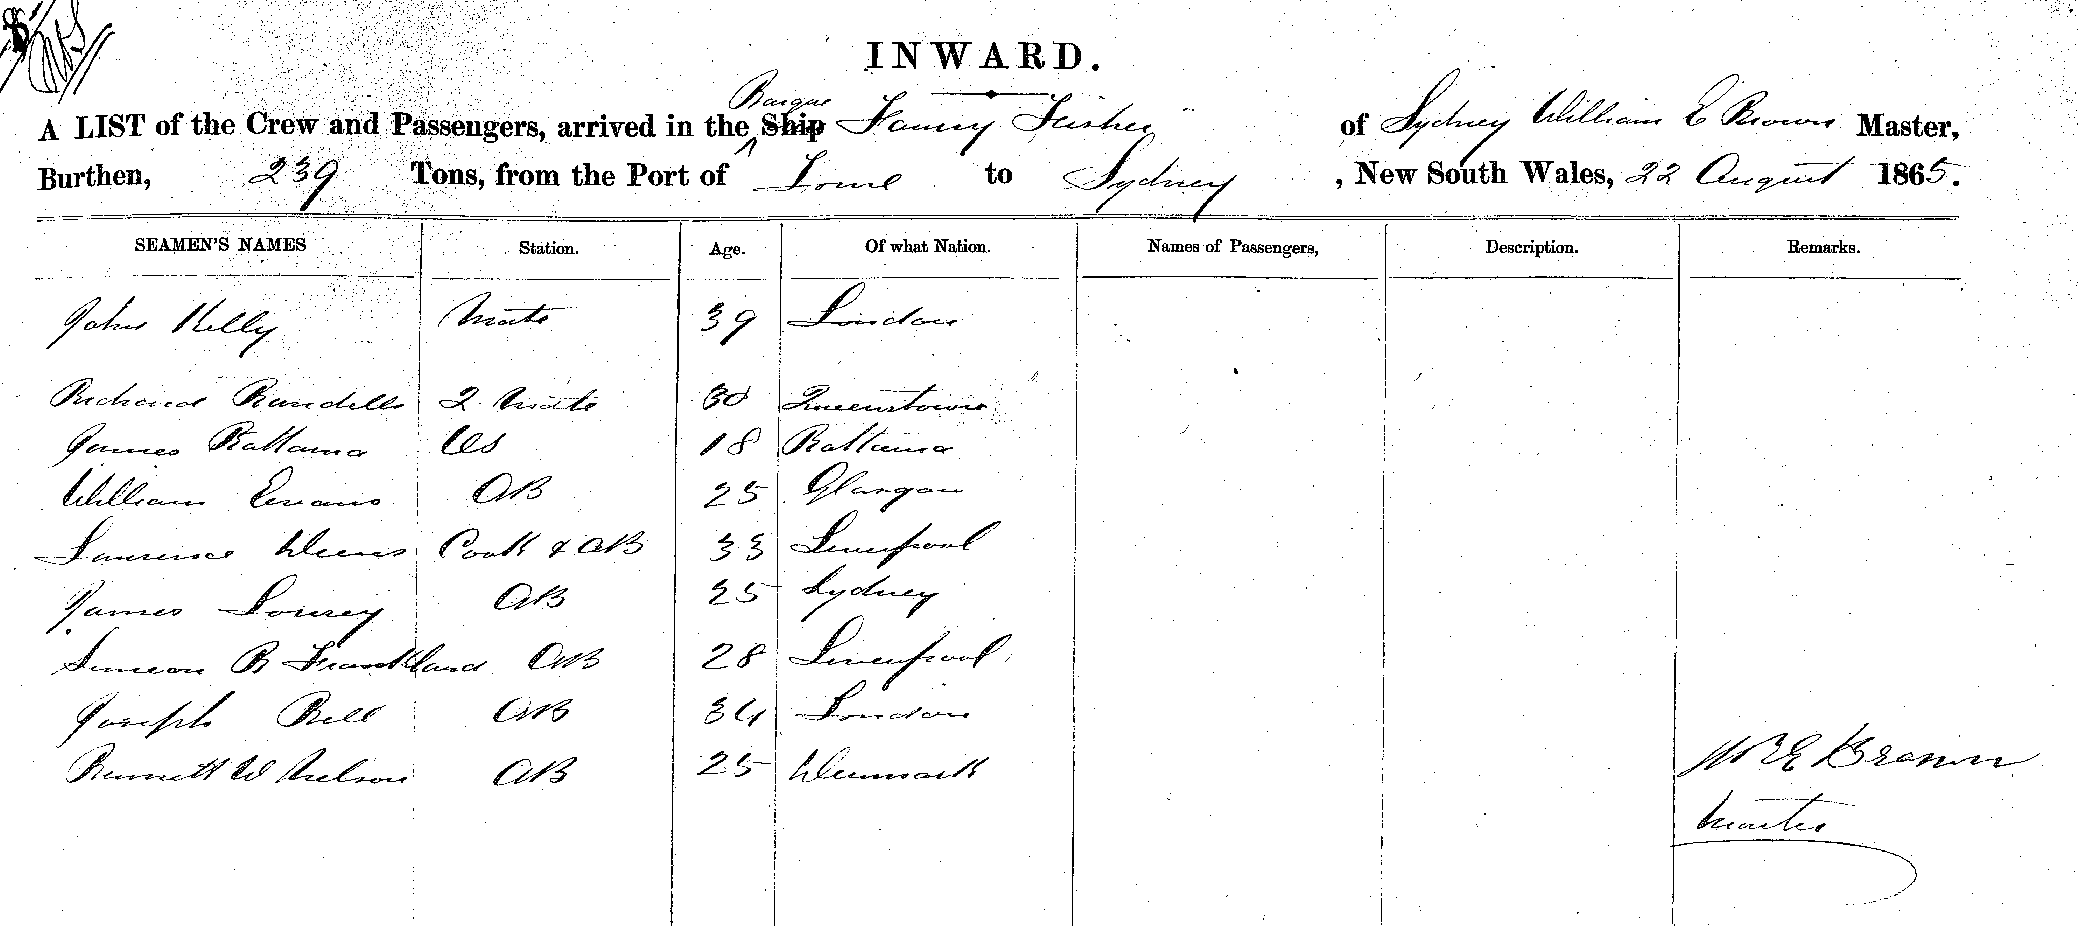 INWARD.
Barque
A LIST of the Crew and Passengers, arrived in the Ship Fanny Fisher of Sydney William E Brown Master,
Burthen, 239 Tons, from the Port of to Sydney , New South Wales, 22 August 1865.
SEAMEN'S NAMES Station. Age. Of what Nation. Names of Passengers, Description. Remarks.
John Kelly Mate 39 London
Richard Rundells 2 Mate 30 Queenstown
James Rattama OS 18 Rattama
William Evans AB 25 Glasgow
Laurence Cook & AB 33 Liverpool
James Lowrey AB 25 Sydney
Simeon B Frankland AB 28 Liverpool
Joseph Bell AB 34 London
Bennett W Nelson AB 25 Denmark
Wm E Brown
Master